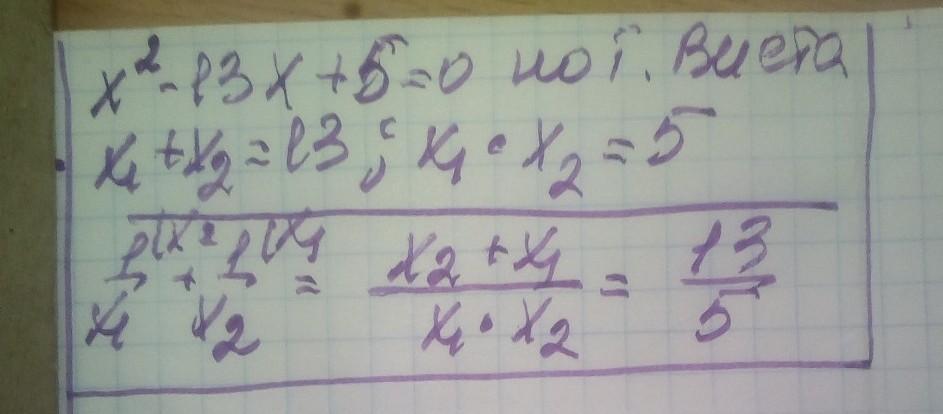 x² - 13x + 5 = 0 по т. Виета
x₁ + x₂ = 13; x₁ · x₂ = 5
1(x₂/x₁ + 1(x₁/x₂ = x₂ + x₁/x₁ · x₂ = 13/5